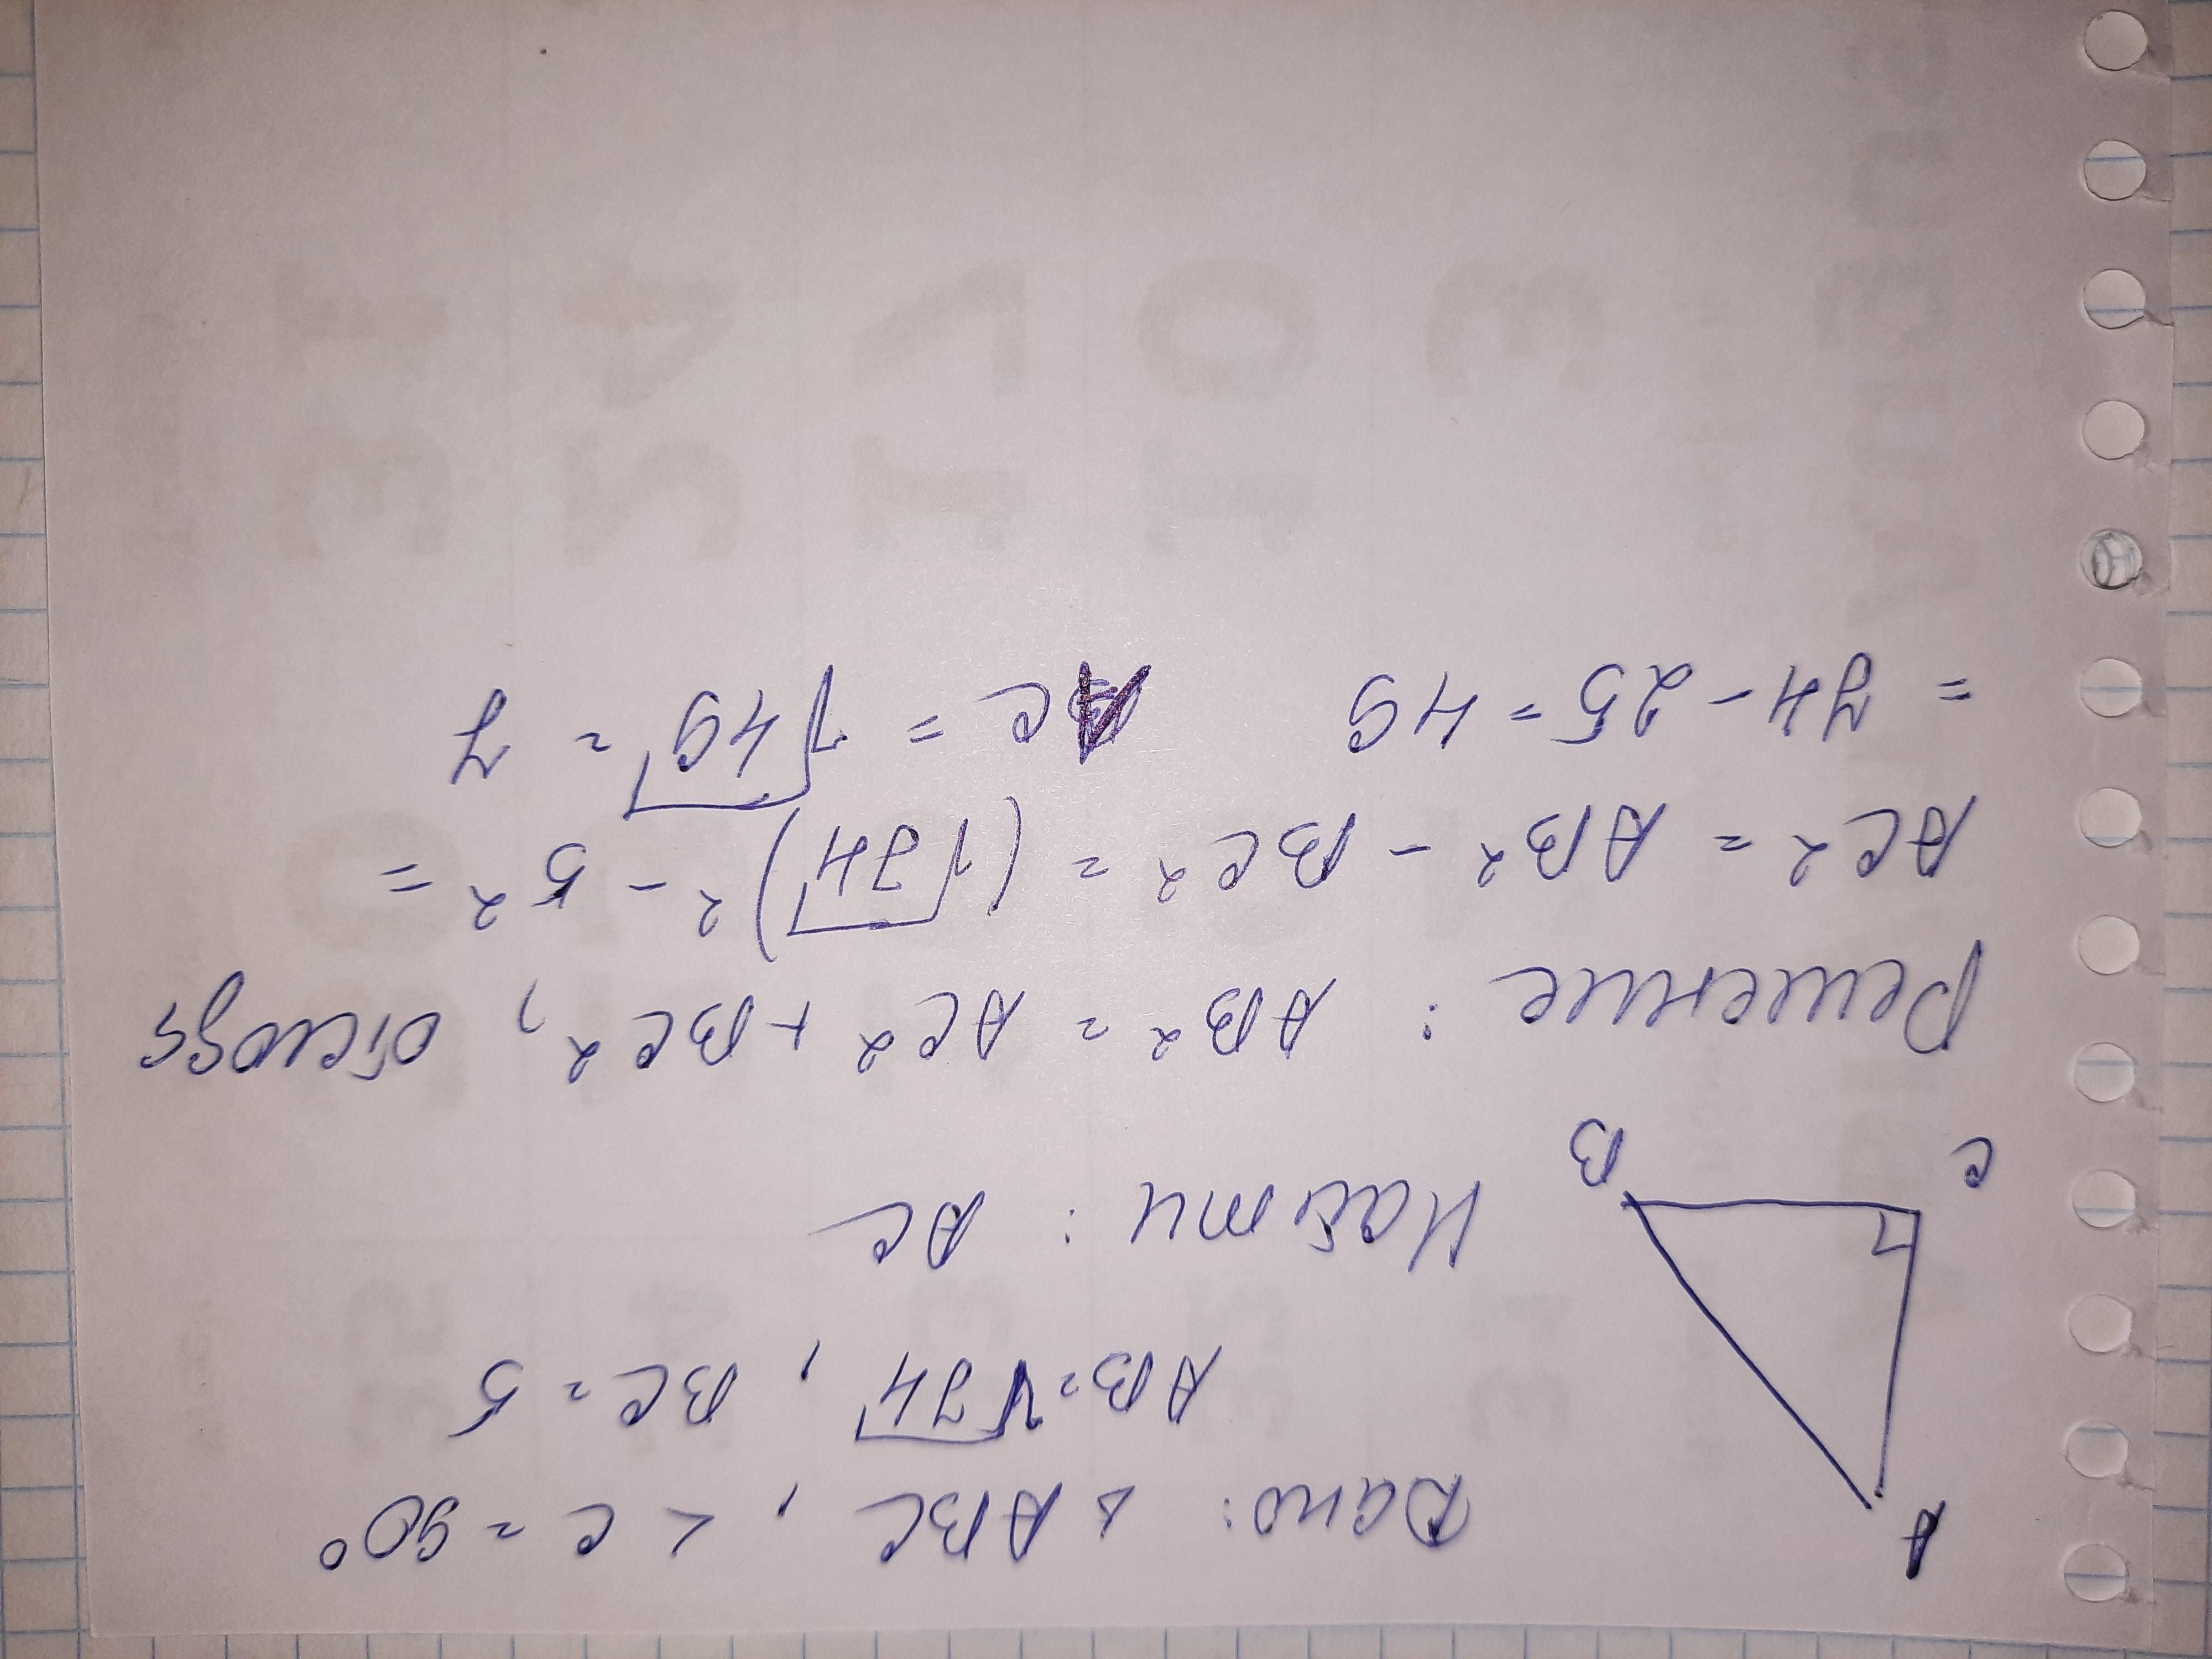 Дано: △ ABC, < C = 90°
AB = √74, BC = 5
Найти: AC
A
C
B
Решение: AB² = AC² + BC², отсюда
AC² = AB² - BC² = (√74)² - 5² =
= 74 - 25 = 49 AC = √49 = 7